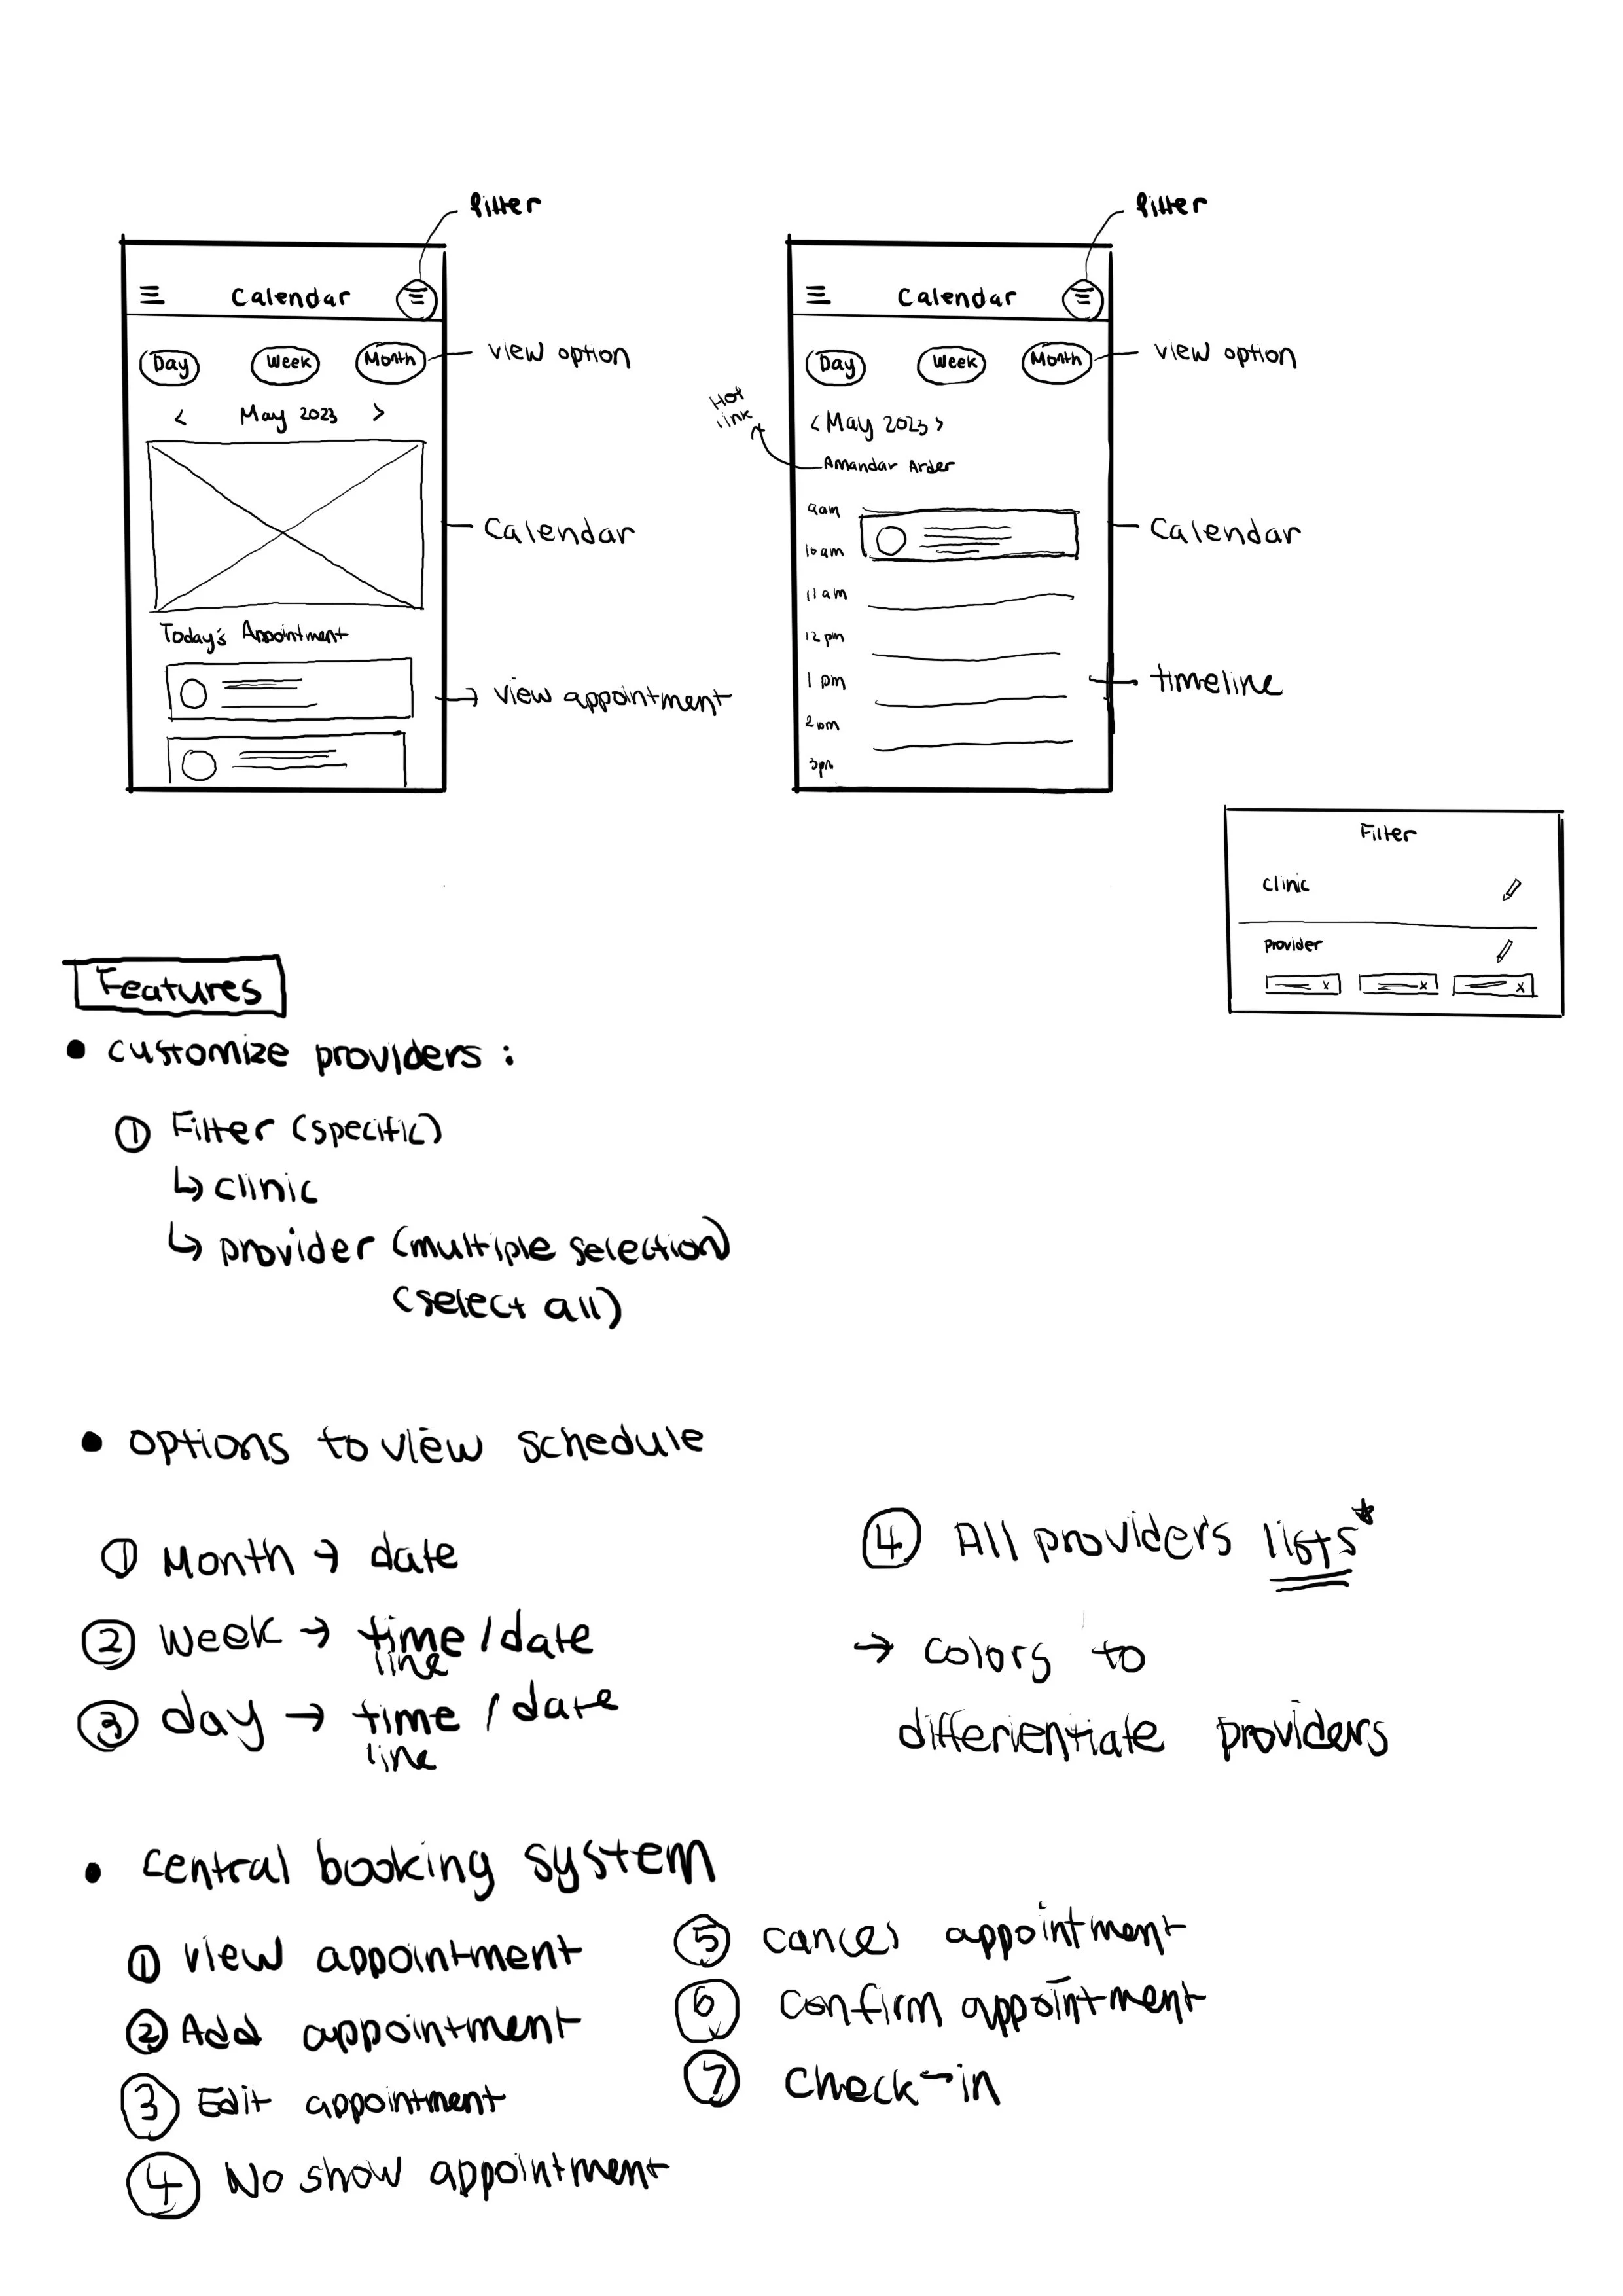 filter
filter
Calendar
Calendar
Day Week Month
view option
Day Week Month
view option
< May 2023 >
Hot link
< May 2023 >
Amandar Arder
9am
Calendar
Calendar
10 am
11 am
Today's Appointment
12 pm
view appointment
1 pm
timeline
2 pm
3pm
Filter
clinic
provider
x x x
Features
• customize providers :
① Filter (specific)
↳ clinic
↳ provider (multiple selection)
(select all)
• options to view schedule
① Month → date
② week → time / date
line
③ day → time / date
line
④ All providers lists*
→ colors to
differientiate providers
• central booking system
① view appointment
② Add appointment
③ Edit appointment
④ No show appointment
⑤ cancel appointment
⑥ confirm appointment
⑦ check-in